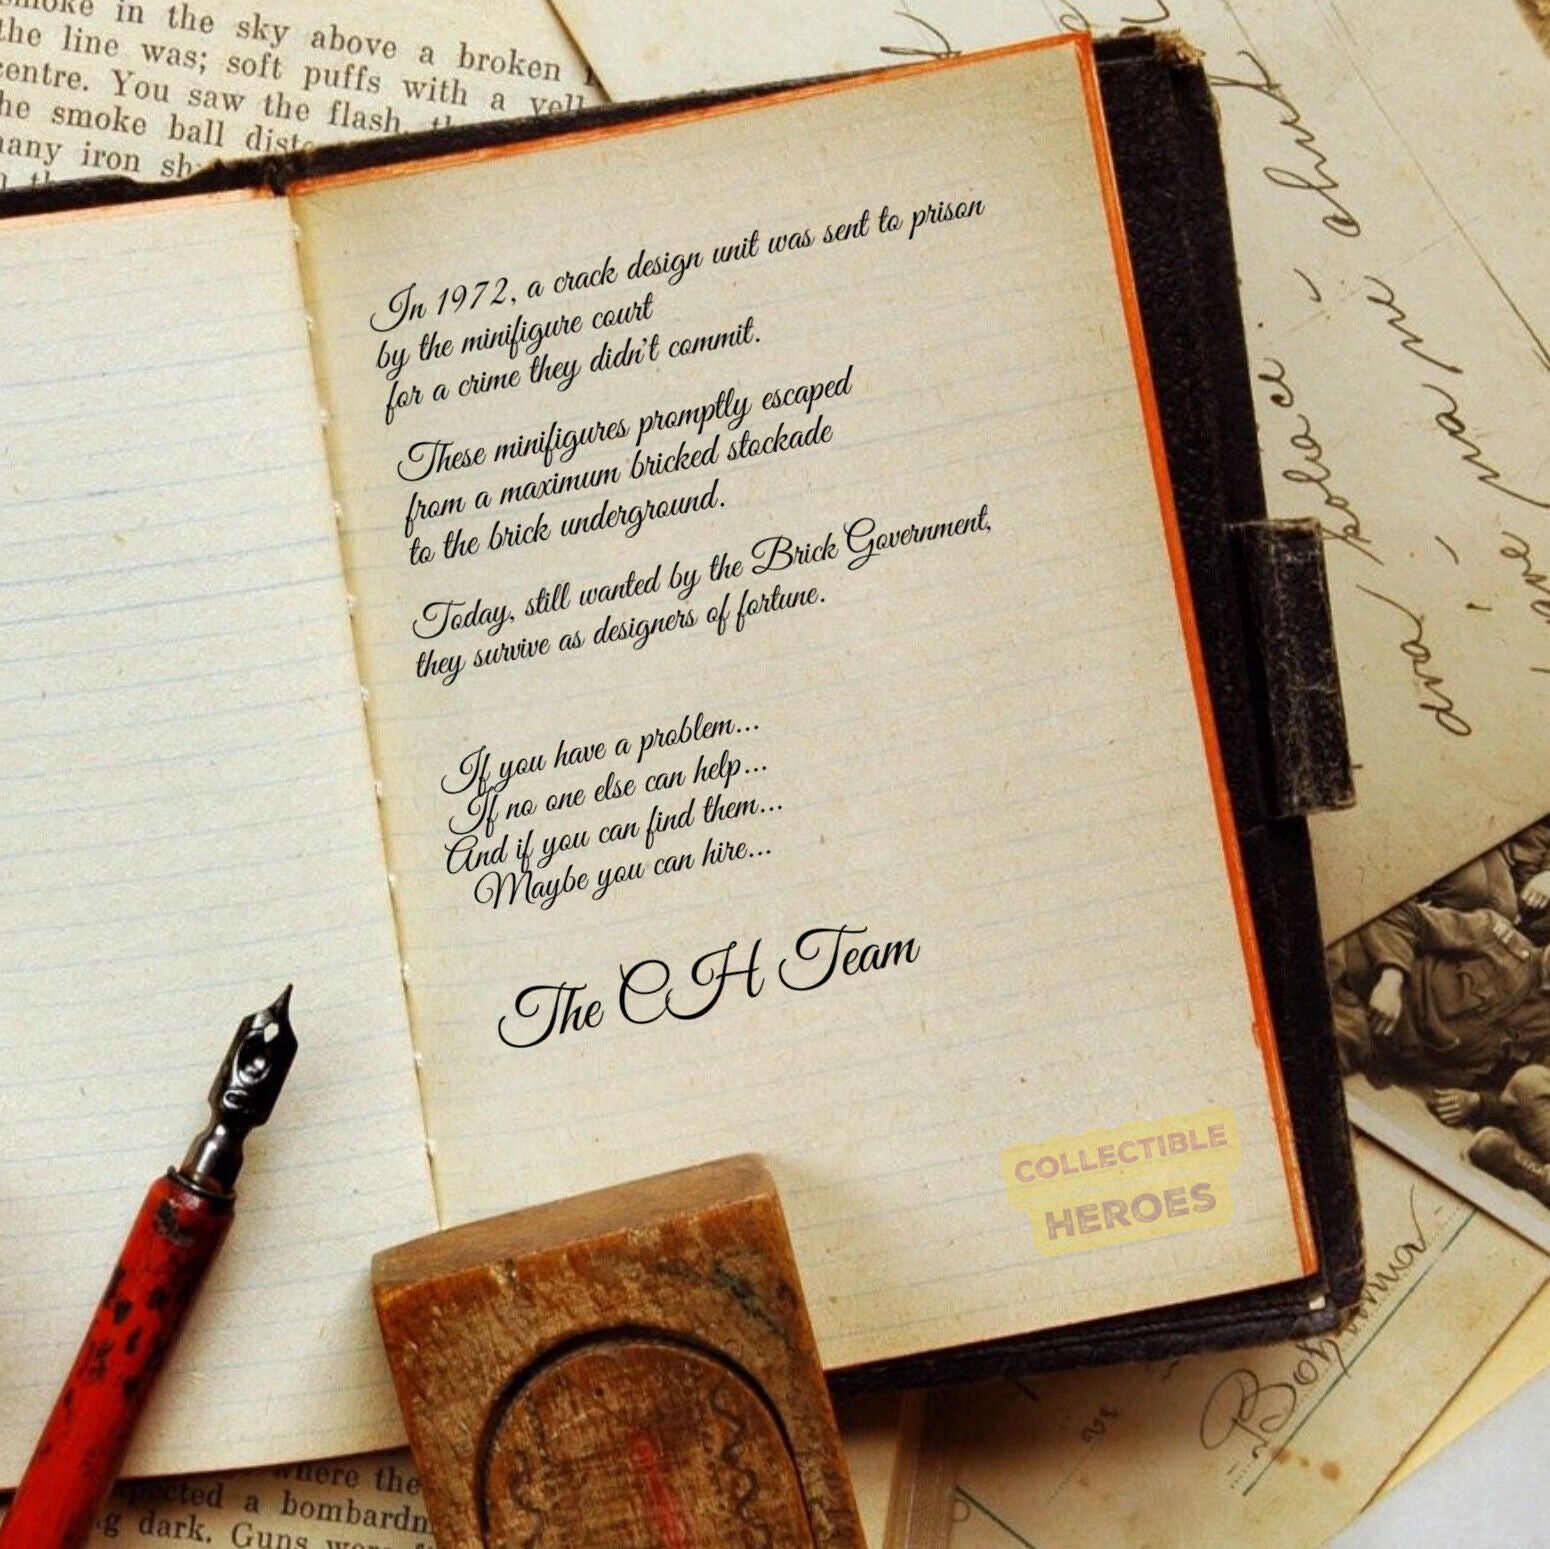 smoke in the sky above a broken
the line was; soft puffs with a yell
centre. You saw the flash,
he smoke ball dist
many iron sh
In 1972, a crack design unit was sent to prison
by the minifigure court
for a crime they didn't commit.
These minifigures promptly escaped
from a maximum bricked stockade
to the brick underground.
Today, still wanted by the Brick Government,
they survive as designers of fortune.
If you have a problem...
If no one else can help...
And if you can find them...
Maybe you can hire...
The CH Team
COLLECTIBLE
HEROES
where the
a bombardm
g dark. Guns were